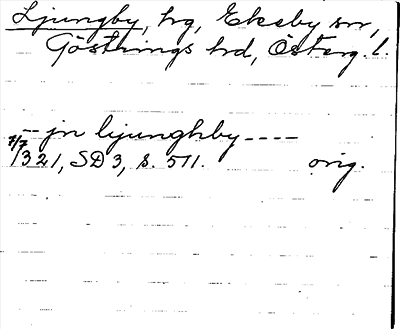 Ljungby, hg, Ekeby sn,
Göstrings hd, Österg. l.
-- jn ljunghby ----
7/7
1321, SD 3, s. 511. orig.